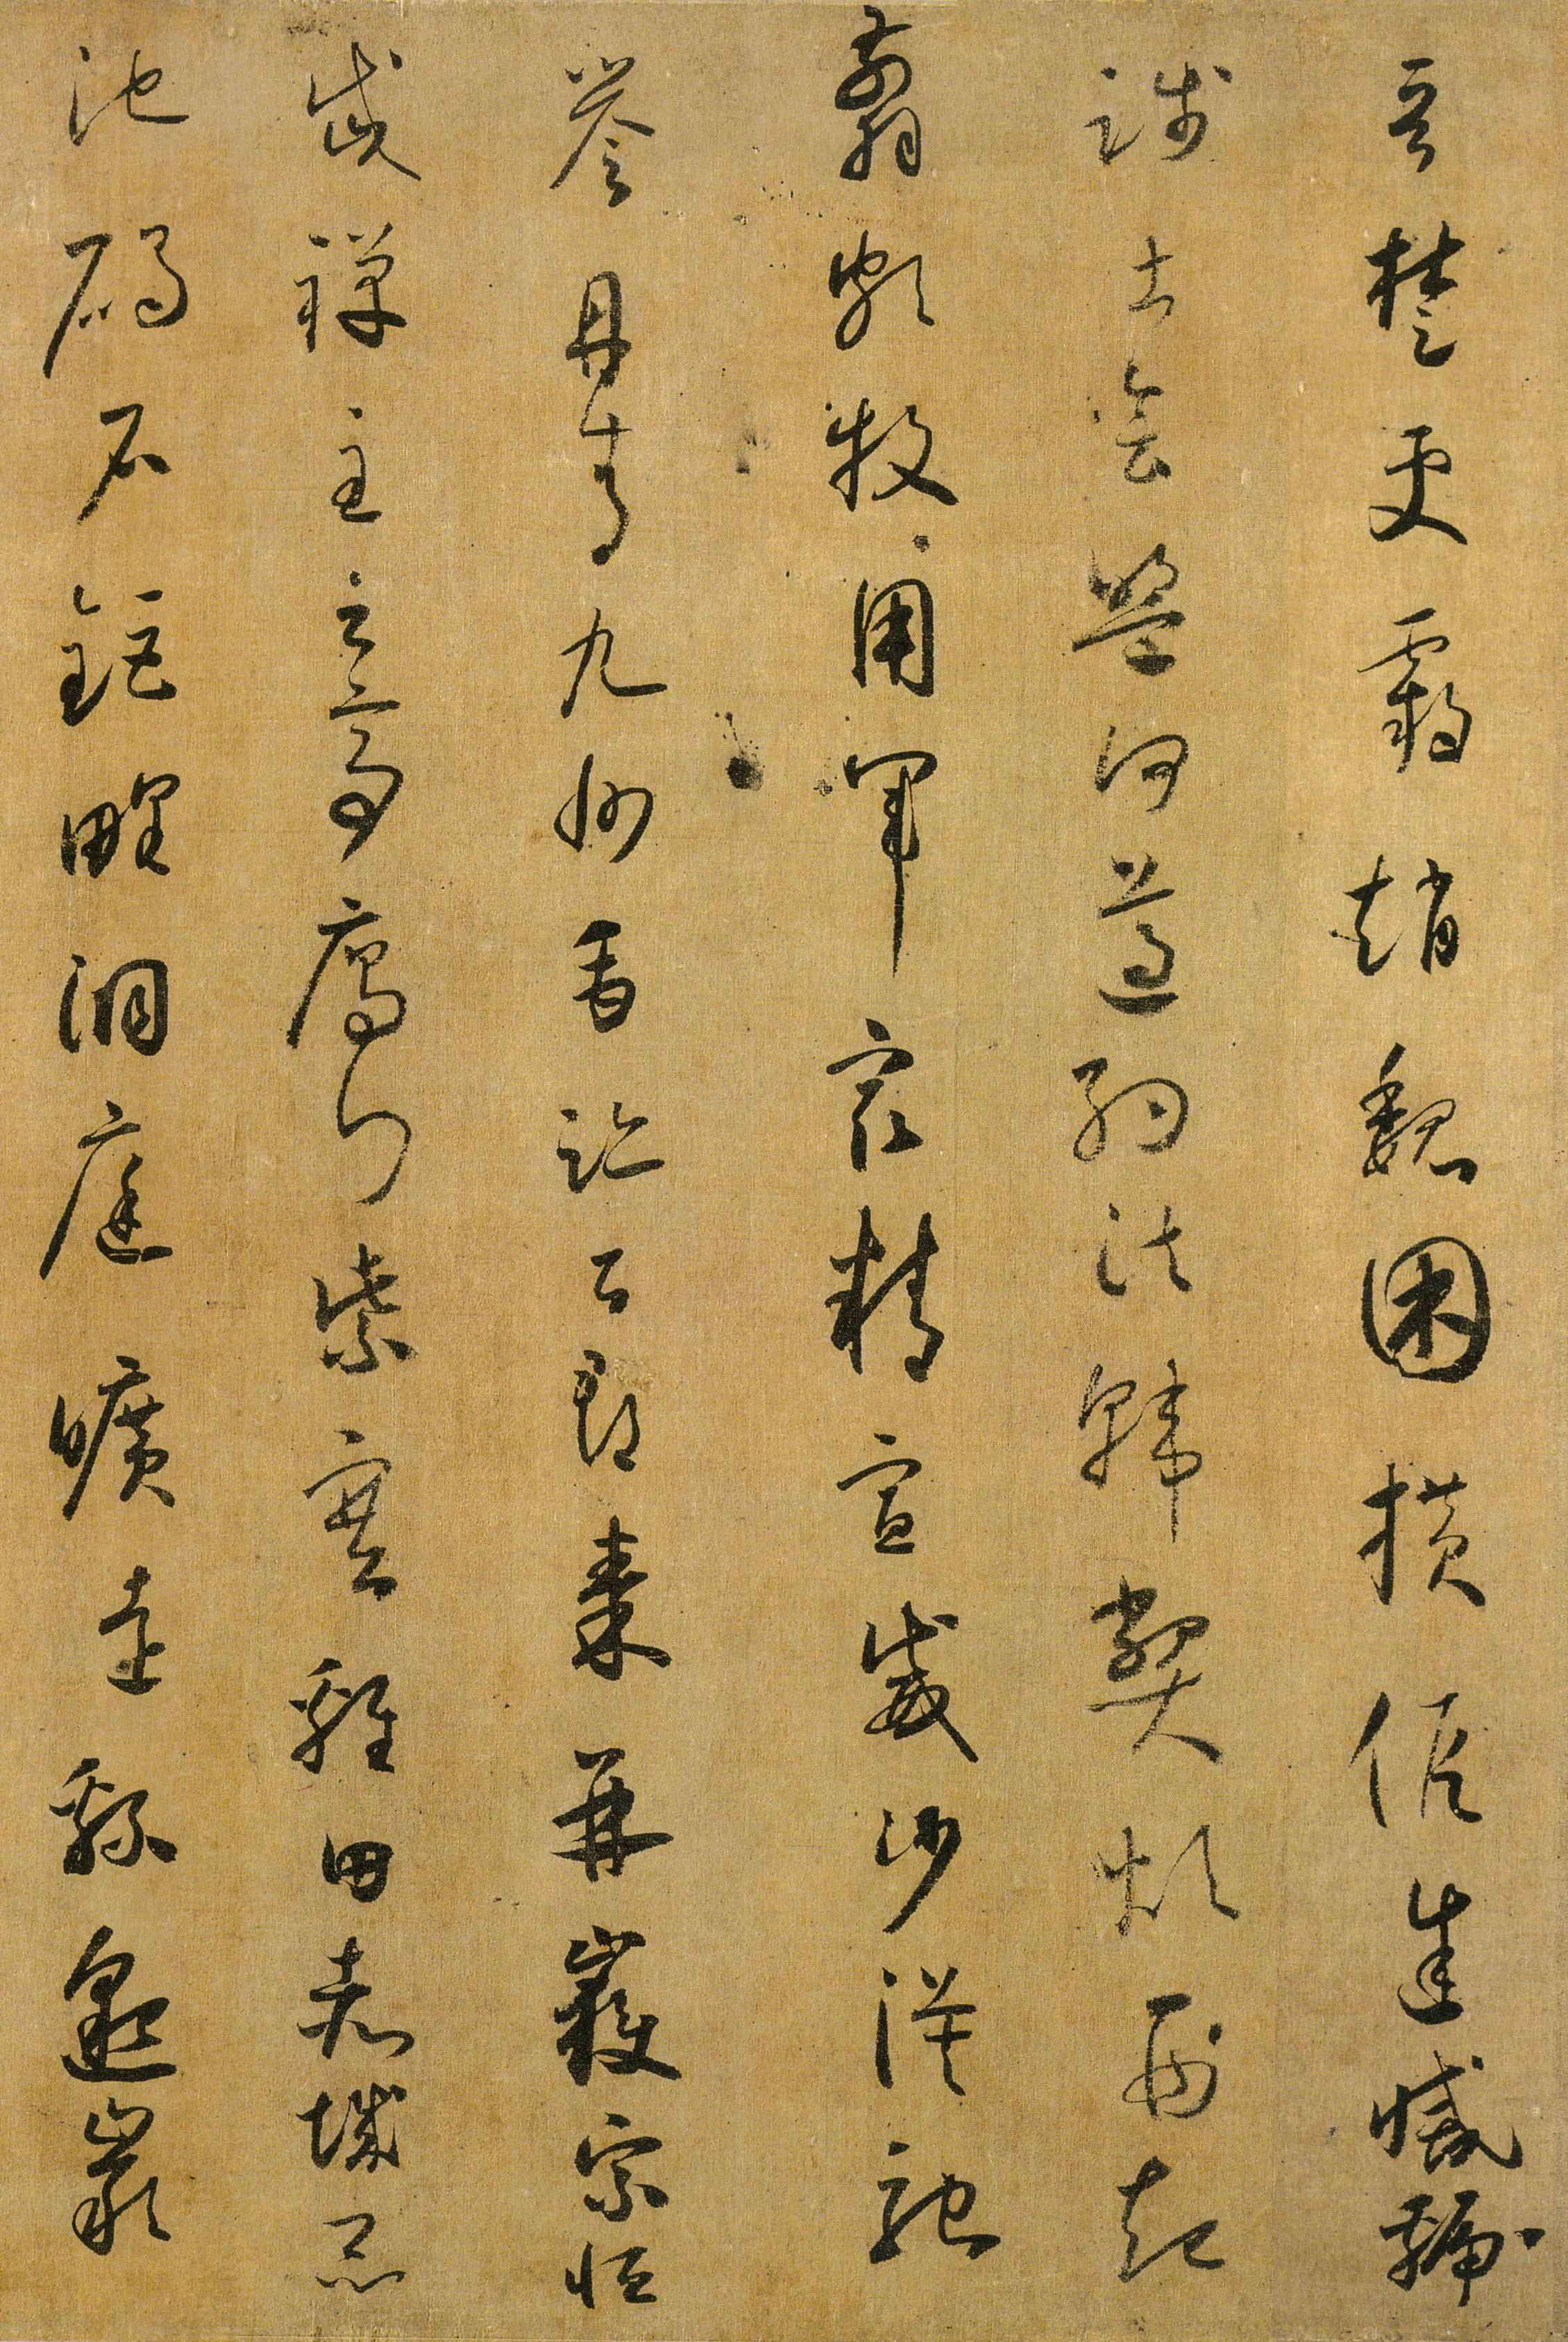 晉楚更霸趙魏困橫假途滅虢
踐土會盟何遵約法韓弊煩刑起
翦頗牧用軍最精宣威沙漠馳
譽丹青九州禹跡百郡秦并嶽宗恒
岱禪主云亭鴈門紫塞雞田赤城昆
池碣石鉅野洞庭曠遠緜邈巖